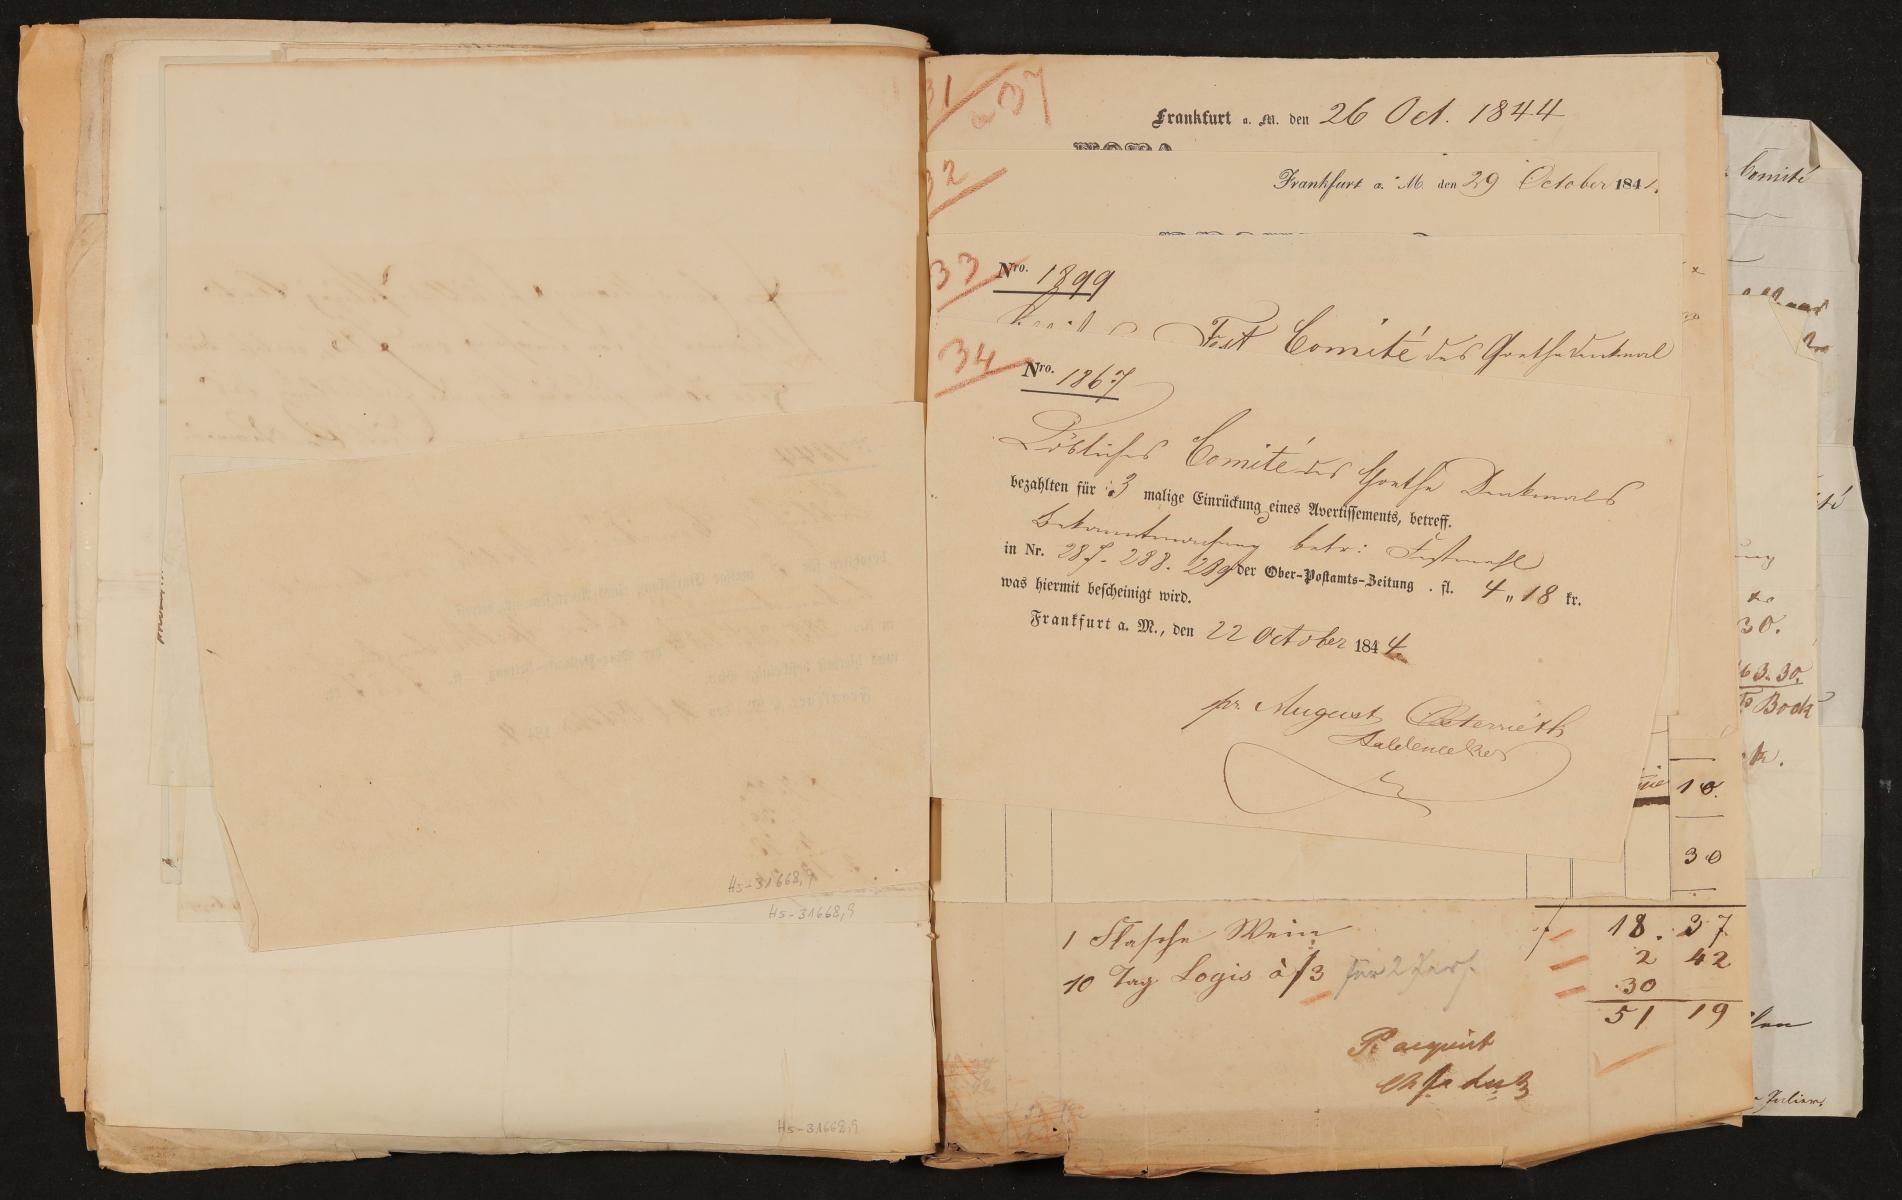 31
a 37
Frankfurt a. M. den 26 Oct. 1844
32
Frankfurt a. M. den 29 October 184
33
Nro. 1899
Fest Comité des Goethedenkmal
34
Nro. 1867
Löbliches Comité des Goethe Denkmals
bezahlten für 3 malige Einrückung eines Avertissements, betreff.
Bekanntmachung betr: Festmahl
in Nr. 287. 288. 289 der Ober-Postamts-Zeitung . fl. 4 „ 18 kr.
was hiermit bescheinigt wird.
Frankfurt a. M., den 22 October 1844.
pr. August Osterrieth
10.
30
18. 37
1 Flasche Wein 2 42
10 Tag Logis à f 3 für 2 Pers. 30
51 19
P. acquit
Comité
30.
63.30.
Bock
Hs-31668,9
Hs-31668,9
Hs-31668,9